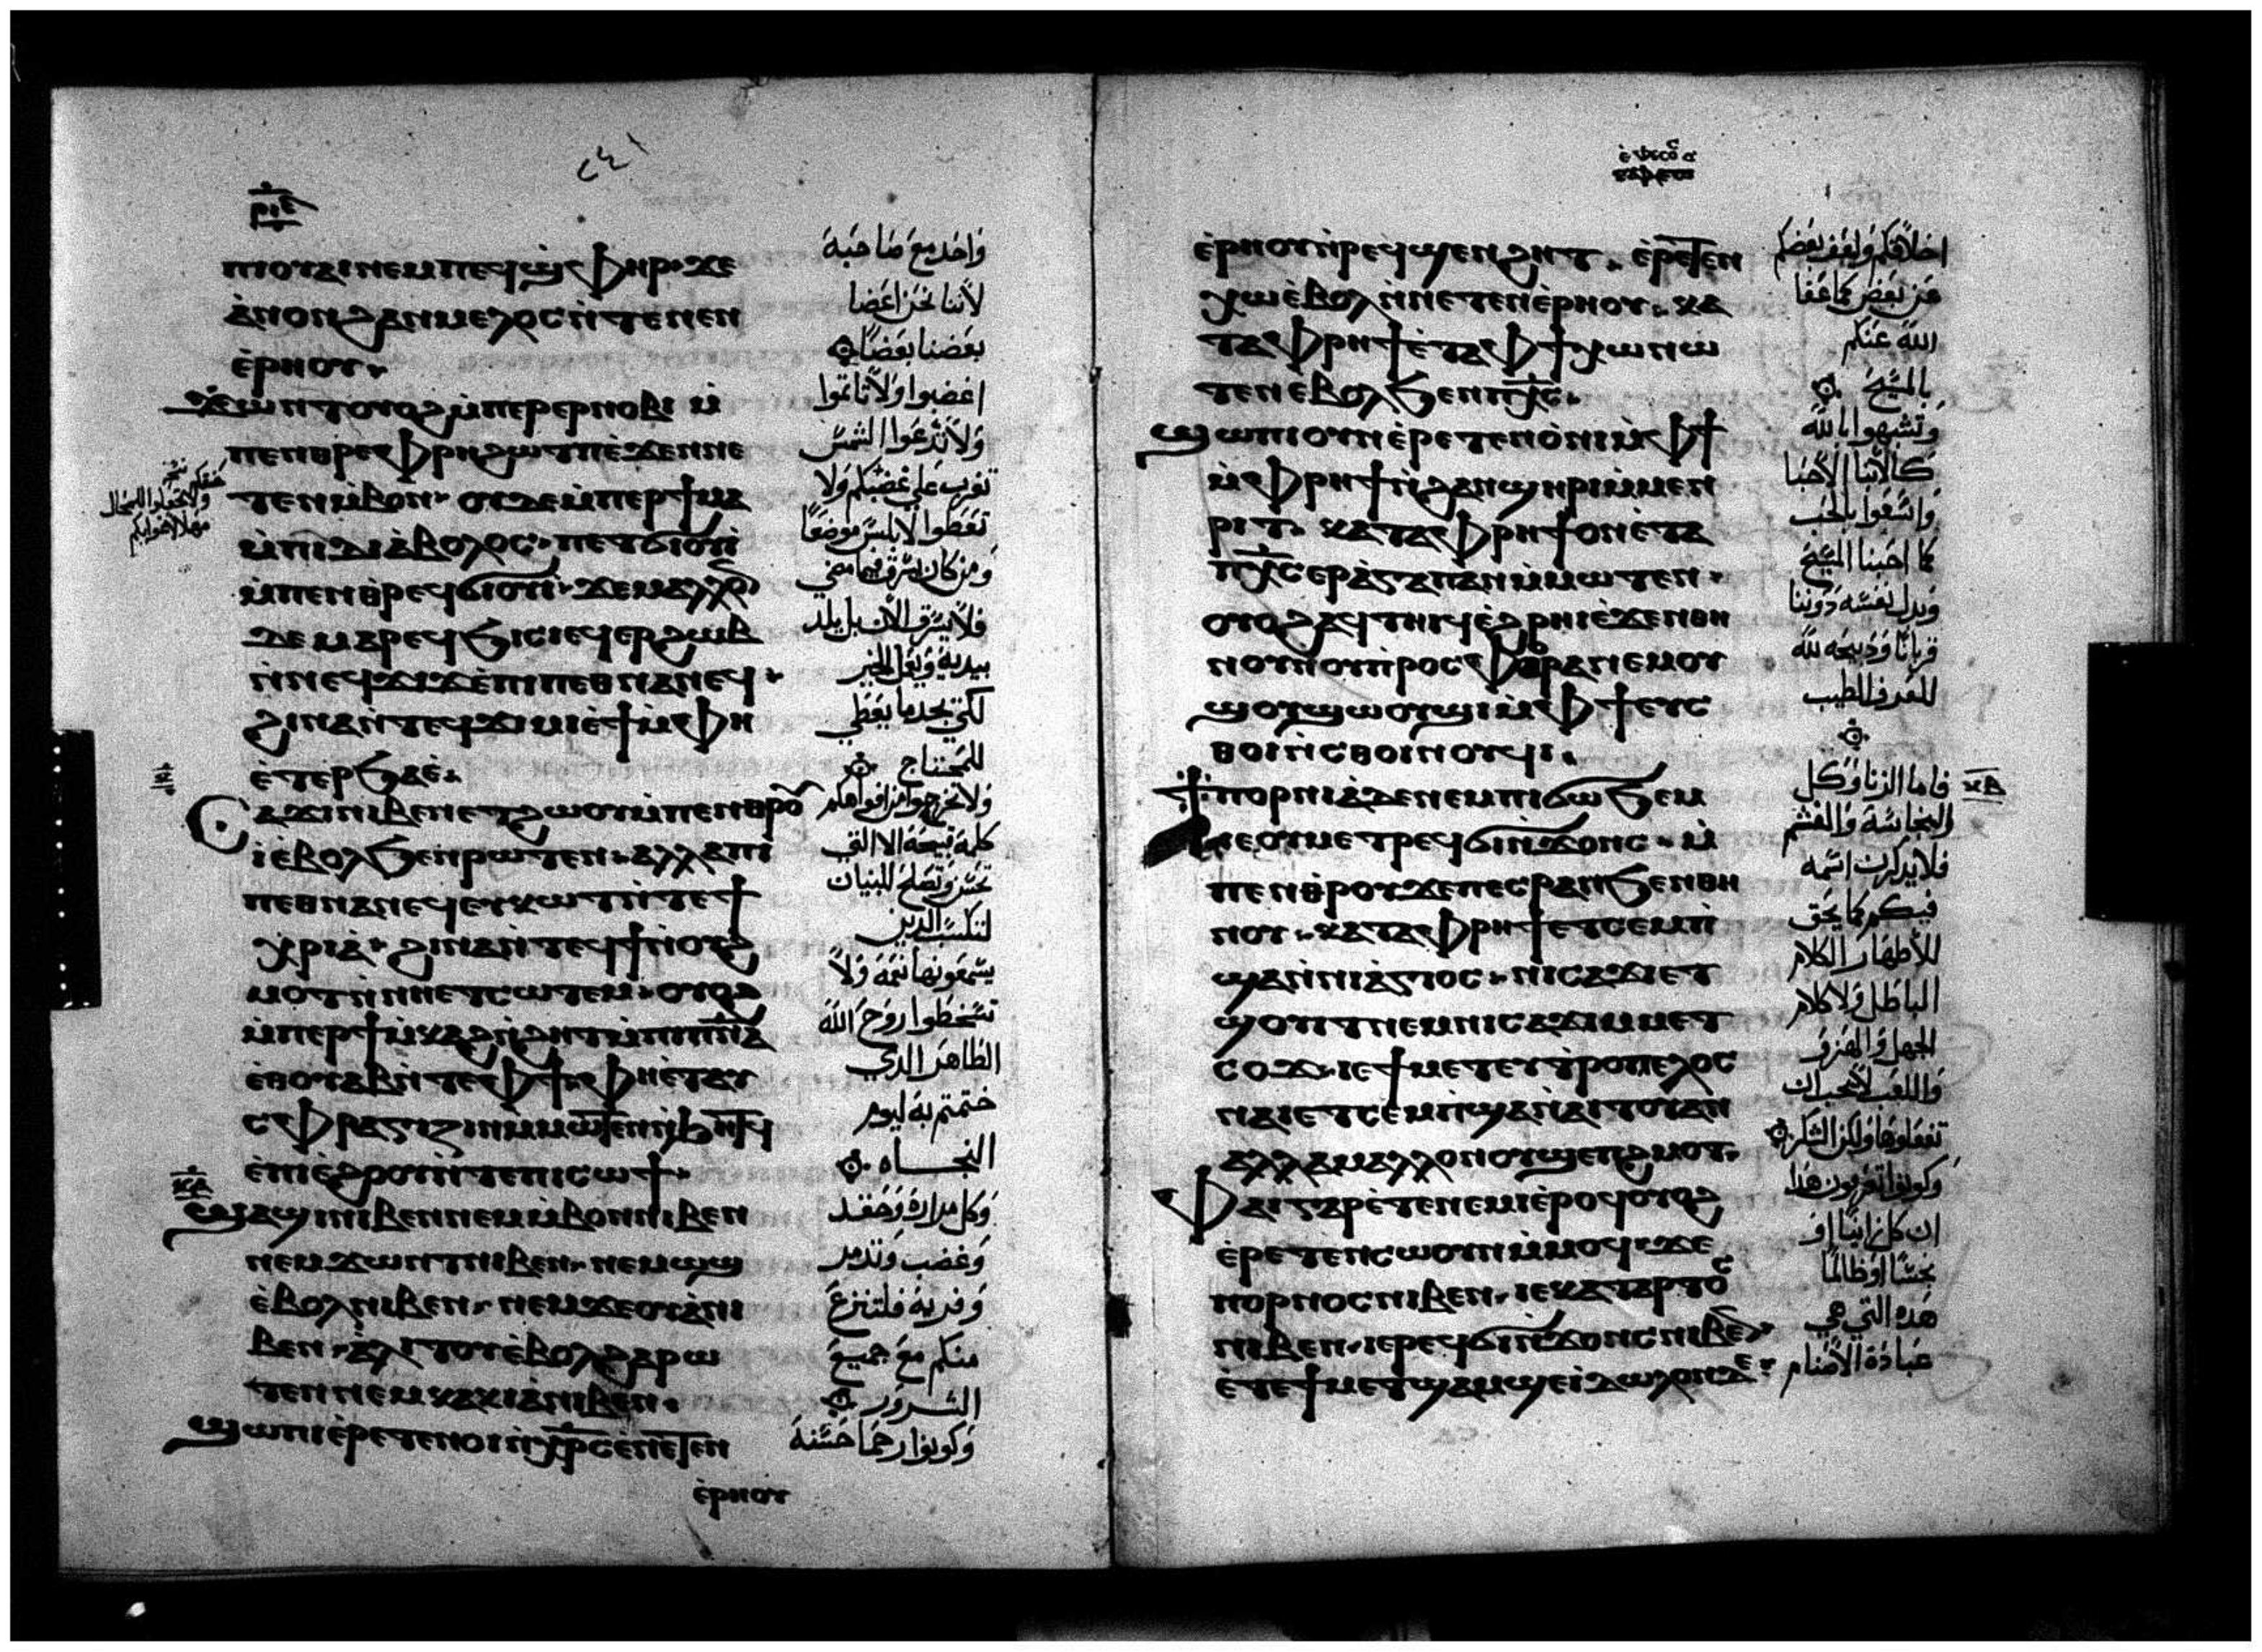 ٢٤١
ⲣⲓⲉ
ⲡⲓⲟⲩⲁⲓ ⲛⲉⲙ ⲡⲉϥϣ̀ⲫⲏⲣ· ϫⲉ
ⲁ̀ⲛⲟⲛ ϩⲁⲛⲙⲉⲗⲟⲥ ⲛ̀ⲧⲉ ⲛⲉⲛ
ⲉ̀ⲣⲏⲟⲩ·
ϫⲱⲛⲧ ⲟⲩⲟϩ ⲙ̀ⲡⲉⲣⲉⲣⲛⲟⲃⲓ ⲙ̀
ⲡⲉⲛⲑⲣⲉ ⲫⲣⲏ ϩⲱⲧⲡ ⲉ̀ϫⲉⲛ ⲡⲉ
ⲧⲉⲛⲙ̀ⲃⲟⲛ· ⲟⲩⲇⲉ ⲙ̀ⲡⲉⲣϯⲙⲁ
ⲙ̀ⲡⲓⲇⲓⲁ̀ⲃⲟⲗⲟⲥ· ⲡⲉⲧϭⲓⲟⲩⲓ̀
ⲙ̀ⲡⲉⲛⲑⲣⲉϥϭⲓⲟⲩⲓ̀· ϫⲉ ⲙⲁⲗⲗⲟ
ⲇⲉ ⲙⲁⲣⲉϥϧⲓⲥⲓ ⲉϥⲉⲣϩⲱⲃ
ⲛ̀ⲛⲉϥϫⲓϫ ⲉ̀ⲡⲓⲡⲉⲑⲛⲁⲛⲉϥ·
ϩⲓⲛⲁ ⲛ̀ⲧⲉϥϫⲓⲙⲓ ⲉ̀ϯ ⲙ̀ⲫⲏ
ⲉ̀ⲧⲉⲣϧⲁⲉ̀·
ⲥⲁϫⲓ ⲛⲓⲃⲉⲛ ⲉⲧϩⲱⲟⲩ ⲙ̀ⲡⲉⲛⲑⲣⲟ
ⲓ̀ ⲉ̀ⲃⲟⲗ ϧⲉⲛ ⲣⲱⲧⲉⲛ· ⲁⲗⲗⲁ ⲡⲓ
ⲡⲉⲑⲛⲁⲛⲉϥ ⲉⲩⲕⲱⲧ ⲛ̀ⲧⲉ ϯ
ⲭⲣⲓⲁ̀· ϩⲓⲛⲁ ⲛ̀ⲧⲉϥϯ ⲛ̀ⲟⲩϩ
ⲙⲟⲧ ⲛ̀ⲛⲏⲉⲧⲥⲱⲧⲉⲙ· ⲟⲩⲟϩ
ⲙ̀ⲡⲉⲣϯⲙ̀ⲕⲁϩ ⲛ̀ϩⲏⲧ ⲙ̀ⲡⲓⲡ̅ⲛ̅ⲁ
ⲉ̀ⲑⲟⲩⲁⲃ ⲛ̀ⲧⲉ ⲫϯ· ⲫⲏⲉ̀ⲧⲁⲩ
ⲥⲫⲣⲁⲅⲓⲍⲓⲛ ⲙ̀ⲙⲱⲧⲉⲛ ⲛ̀ϧⲏⲧϥ
ⲉ̀ⲡⲓⲉ̀ϩⲟⲟⲩ ⲛ̀ⲧⲉ ⲡⲓⲥⲱϯ·
ϣⲁϣⲓ ⲛⲓⲃⲉⲛ ⲛⲉⲙ ⲙ̀ⲃⲟⲛ ⲛⲓⲃⲉⲛ
ⲛⲉⲙ ϫⲱⲛⲧ ⲛⲓⲃⲉⲛ· ⲛⲉⲙ ⲱϣ
ⲉ̀ⲃⲟⲗ ⲛⲓⲃⲉⲛ· ⲛⲉⲙ ϫⲉⲟⲩⲁ̀ ⲛⲓ
ⲃⲉⲛ· ⲁ̀ⲗⲓⲧⲟⲩ ⲉ̀ⲃⲟⲗ ϩⲁⲣⲱ
ⲧⲉⲛ ⲛⲉⲙ ⲕⲁⲕⲓⲁ̀ ⲛⲓⲃⲉⲛ·
ϣⲱⲡⲓ ⲉ̀ⲣⲉⲧⲉⲛⲟⲓ ⲛ̀ⲭ̅ⲣ̅ⲥ ⲉ̀ⲛⲉⲧⲉⲛ
ⲉ̀ⲣⲏⲟⲩ
واحد مع صاحبه
لاننا نحن اعضا
بعضنا بعضا
اغضبوا ولا تاثموا
ولا تدعوا الشمس
تغرب علي غضبكم ولا
تعطوا لابليس موضعا
ومن كان يسرق فيما مضي
فلا يسرق الان بل يكد
بيديه ويعمل الخير
لكي يجد ما يعطي
للمحتاج
ولا تخرجوا من افواهكم
كلمة قبيحة الا التي
تحسن وتصلح للبنيان
يسمعونها نعمة ولا
تسخطوا روح الله
الطاهر الذي
ختمتم به ليوم
النجاه
وكل مرارة وحقد
وغضب وتذمر
وفرية فلتنزع
منكم مع جميع
الشرور
وكونوا رحما حسنة
ⲉ̀ⲣⲏⲟⲩ ⲛ̀ⲣⲉϥϣⲉⲛϩⲏⲧ· ⲉ̀ⲣⲉⲧⲉⲛ
ⲭⲱ ⲉ̀ⲃⲟⲗ ⲛ̀ⲛⲉⲧⲉⲛⲉ̀ⲣⲏⲟⲩ· ⲕⲁ
ⲧⲁ ⲫⲣⲏϯ ⲉ̀ⲧⲁ ⲫϯ ⲭⲱ ⲛⲱ
ⲧⲉⲛ ⲉⲃⲟⲗ ϧⲉⲛ ⲡⲭ̅ⲥ·
ϣⲱⲡⲓ ⲟⲩⲛ ⲉ̀ⲣⲉⲧⲉⲛⲟ̀ⲛⲓ ⲙ̀ⲫϯ
ⲙ̀ⲫⲣⲏϯ ⲛ̀ϩⲁⲛϣⲏⲣⲓ ⲙ̀ⲙⲉⲛ
ⲣⲓⲧ· ⲕⲁⲧⲁ ⲫⲣⲏϯ ⲟⲛ ⲉ̀ⲧⲁ
ⲡⲭ̅ⲥ ⲉⲣⲁ̀ⲅⲁⲡⲁⲛ ⲙ̀ⲙⲱⲧⲉⲛ·
ⲟⲩⲟϩ ⲁϥⲧⲏⲓϥ ⲉ̀ϩⲣⲏⲓ ⲉ̀ϫⲉⲛ ⲑⲏ
ⲛⲟⲩ ⲛⲟⲩⲡ̀ⲣⲟⲥⲫⲟⲣⲁ ⲛⲉⲙ ⲟⲩ
ϣⲟⲩϣⲱⲟⲩϣⲓ ⲙ̀ⲫϯ ⲉⲩⲥ
ⲑⲟⲓ ⲛ̀ⲥⲑⲟⲓⲛⲟⲩϥⲓ·
ϯⲡⲟⲣⲛⲓⲁ ⲇⲉ ⲛⲉⲙ ⲡⲓϭⲱϧⲉⲙ
ⲛⲉⲟⲩⲙⲉⲧⲣⲉϥϭⲓⲛ̀ϫⲟⲛⲥ· ⲙ̀
ⲡⲉⲛⲑⲣⲟⲩϫⲉ ⲡⲉⲥⲣⲁⲛ ϧⲉⲛ ⲑⲏ
ⲛⲟⲩ· ⲕⲁⲧⲁ ⲫⲣⲏϯ ⲉⲧⲥⲉⲙⲡ̀
ϣⲁ ⲛ̀ⲛⲓⲁ̀ⲅⲓⲟⲥ· ⲛⲓⲥⲁϫⲓ ⲉⲧ
ϣⲟⲩⲓⲧ ⲛⲉⲙ ⲛⲓⲥⲁϫⲓ ⲙⲙⲉⲧ
ⲥⲟϫ· ⲓⲉ ϯⲙⲉⲧⲉⲩⲧⲣⲟⲡⲉⲗⲟⲥ
ⲛⲁⲓ ⲉⲧⲥⲉⲙ̀ⲡϣⲁ ⲛ̀ⲁⲓⲧⲟⲩ ⲁⲛ
ⲁⲗⲗⲁ ⲙⲁⲗⲗⲟⲛ ⲟⲩϣⲉⲡϩⲙⲟⲧ·
ⲫⲁⲓ ⲅⲁⲣ ⲉ̀ⲧⲉⲛⲉⲙⲓ ⲉ̀ⲣⲟϥ ⲟⲩⲟϩ
ⲉ̀ⲣⲉⲧⲉⲛⲥⲱⲟⲩⲛ ⲙ̀ⲙⲟϥ· ϫⲉ
ⲡⲟⲣⲛⲟⲥ ⲛⲓⲃⲉⲛ· ⲓⲉ ⲁⲕⲁⲑⲁⲣⲧⲟⲥ
ⲛⲓⲃⲉⲛ· ⲓⲉ ⲣⲉϥϭⲓⲛ̀ϫⲟⲛⲥ ⲛⲓⲃⲉⲛ
ⲉ̀ⲧⲉ ϯⲙⲉⲧϣⲁⲙϣⲉ ⲓ̀ⲇⲱⲗⲟⲛ ⲧⲉ·
اخلاقكم وليغفر بعضكم
عن بعض كما غفا
الله عنكم
بالمسيح
وتشبهوا بالله
كالابنا الاحبا
واسعوا بالحب
كما احبنا المسيح
وبدل نفسه دوننا
قربانا وذبيحة لله
للعرف الطيب
فاما الزنا وكل
النجاسة والغشم
فلا يذكرن اسمه
فيكم كما يحق
للاطهار الكلام
الباطل ولا كلام
الجهل والهزو
واللعب لا يجب ان
تفعلوها ولكن الشكر
وكونوا تعرفون هذا
ان كل زانيا او
نجسا او ظالما
هذه التي هي
عبادة الاصنام
ⲕⲃ